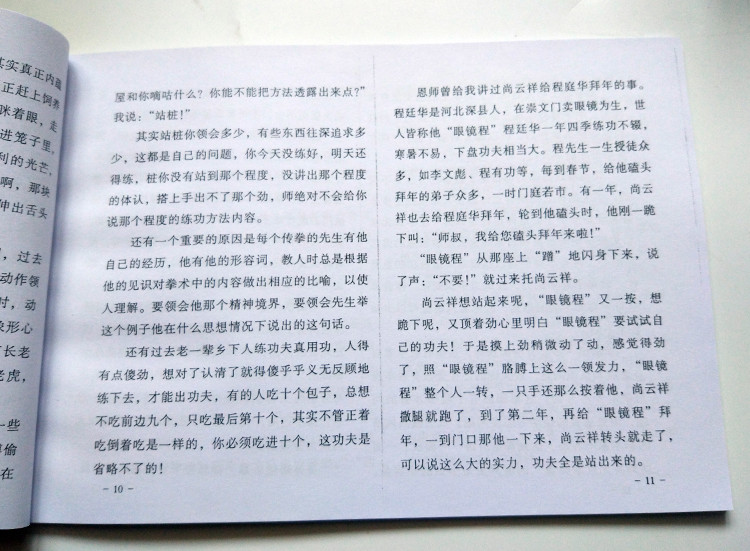 其实真正内蕴
正赶上饲养
眯着眼，走
进笼子里。
利的光芒，
啊，那块
伸出舌头
，过去
动作领
时，动
象形心
长老
老虎，
一些
偷
在
屋和你嘀咕什么？你能不能把方法透露出来点？”
我说：“站桩！”
其实站桩你领会多少，有些东西往深追求多
少，这都是自己的问题，你今天没练好，明天还
得练，桩你没有站到那个程度，没讲出那个程度
的体认，搭上手出不了那个劲，师绝对不会给你
说那个程度的练功方法内容。
还有一个重要的原因是每个传拳的先生有他
自己的经历，他有他的形容词，教人时总是根据
他的见识对拳术中的内容做出相应的比喻，以使
人理解。要领会他那个精神境界，要领会先生举
这个例子他在什么思想情况下说出的这句话。
还有过去老一辈乡下人练功夫真用功，人得
有点傻劲，想对了认清了就得傻乎乎义无反顾地
练下去，才能出功夫，有的人吃十个包子，总想
不吃前边九个，只吃最后第十个，其实不管正着
吃倒着吃是一样的，你必须吃进十个，这功夫是
省略不了的！
- 10 -
恩师曾给我讲过尚云祥给程庭华拜年的事。
程廷华是河北深县人，在崇文门卖眼镜为生，世
人皆称他“眼镜程”程廷华一年四季练功不辍，
寒暑不易，下盘功夫相当大。程先生一生授徒众
多，如李文彪、程有功等，每到春节，给他磕头
拜年的弟子众多，一时门庭若市。有一年，尚云
祥也去给程庭华拜年，轮到他磕头时，他刚一跪
下叫：“师叔，我给您磕头拜年来啦！”
“眼镜程”从那座上“蹭”地闪身下来，说
了声：“不要！”就过来托尚云祥。
尚云祥想站起来呢，“眼镜程”又一按，想
跪下呢，又顶着劲心里明白“眼镜程”要试试自
己的功夫！于是摸上劲稍微动了动，感觉得劲
了，照“眼镜程”胳膊上这么一领发力，“眼镜
程”整个人一转，一只手还那么按着他，尚云祥
撒腿就跑了，到了第二年，再给“眼镜程”拜
年，一到门口那他一下来，尚云祥转头就走了，
可以说这么大的实力，功夫全是站出来的。
- 11 -